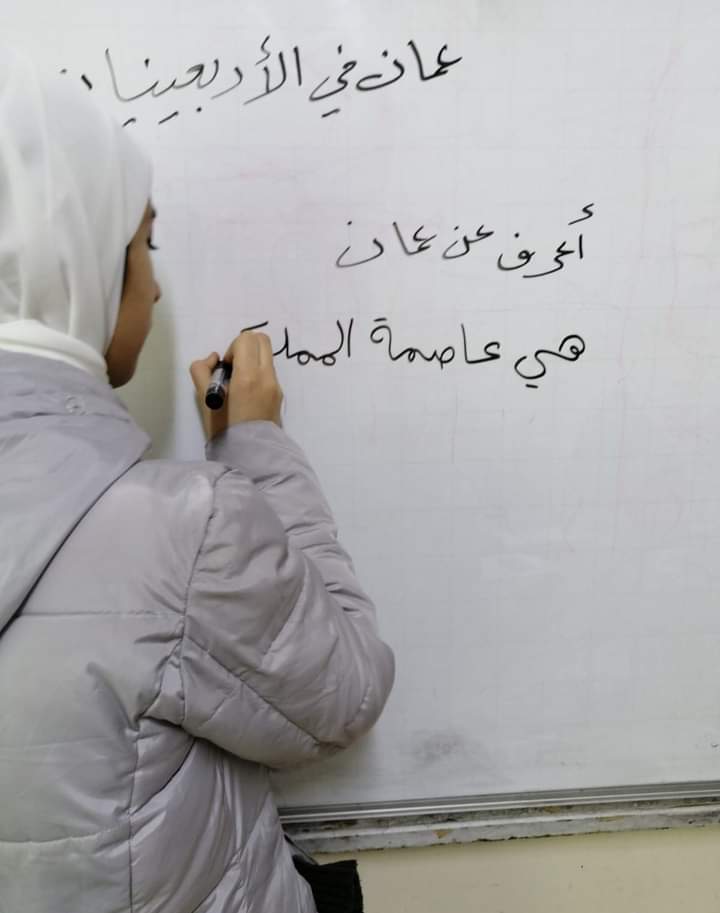 عمان في الأربعينيات
أعرف عن عمان
هي عاصمة